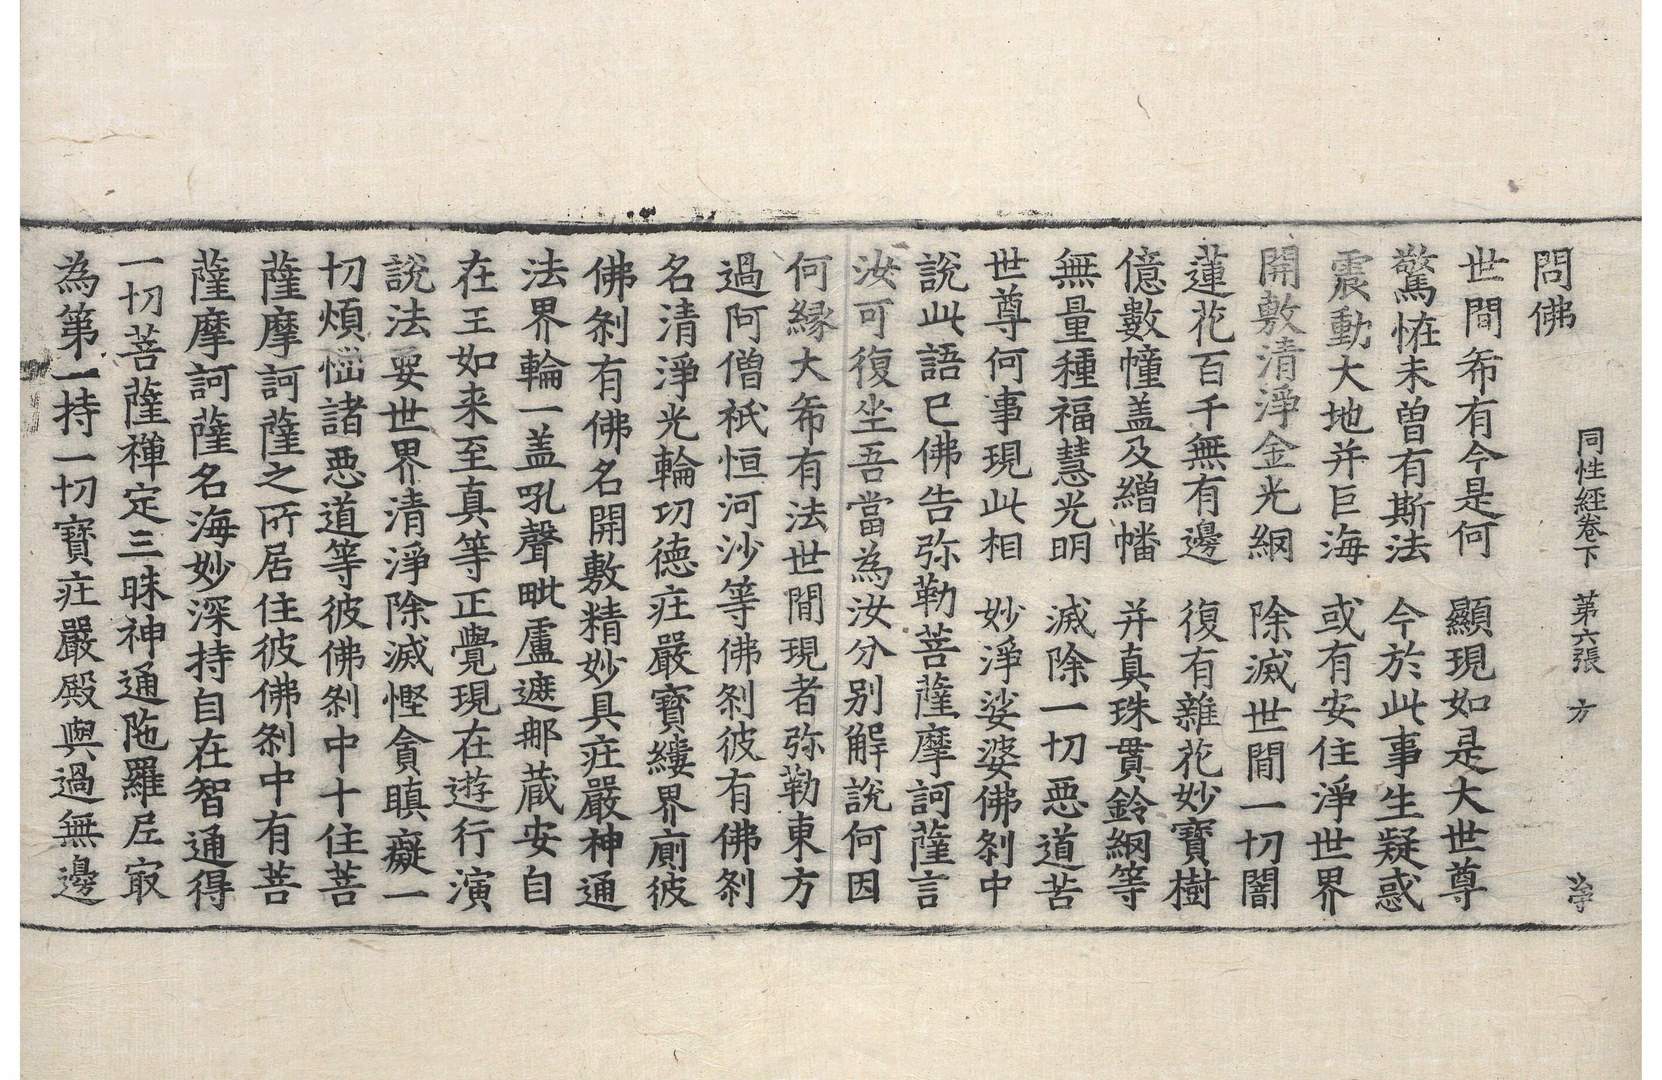 同性經卷下　第六張　方
問佛
世間希有今是何　顯現如是大世尊
驚恠未曾有斯法　今於此事生疑惑
震動大地并巨海　或有安住淨世界
開敷清淨金光網　除滅世間一切闇
蓮花百千無有邊　復有雜花妙寶樹
億數幢盖及繒幡　并真珠貫鈴網等
無量種福慧光明　滅除一切惡道苦
世尊何事現此相　妙淨娑婆佛剎中
說此語已佛告弥勒菩薩摩訶薩言
汝可復坐吾當為汝分別解說何因
何緣大希有法世間現者弥勒東方
過阿僧祇恒河沙等佛剎彼有佛剎
名清淨光輪功德庄嚴寶縷界廁彼
佛剎有佛名開敷精妙具庄嚴神通
法界輪一盖吼聲毗盧遮那藏安自
在王如来至真等正覺現在遊行演
說法要世界清淨除滅慳貪瞋癡一
切煩惱諸惡道等彼佛剎中十住菩
薩摩訶薩之所居住彼佛剎中有菩
薩摩訶薩名海妙深持自在智通得
一切菩薩禪定三昧神通陁羅尼㝡
為第一持一切寶庄嚴殿輿過無邊